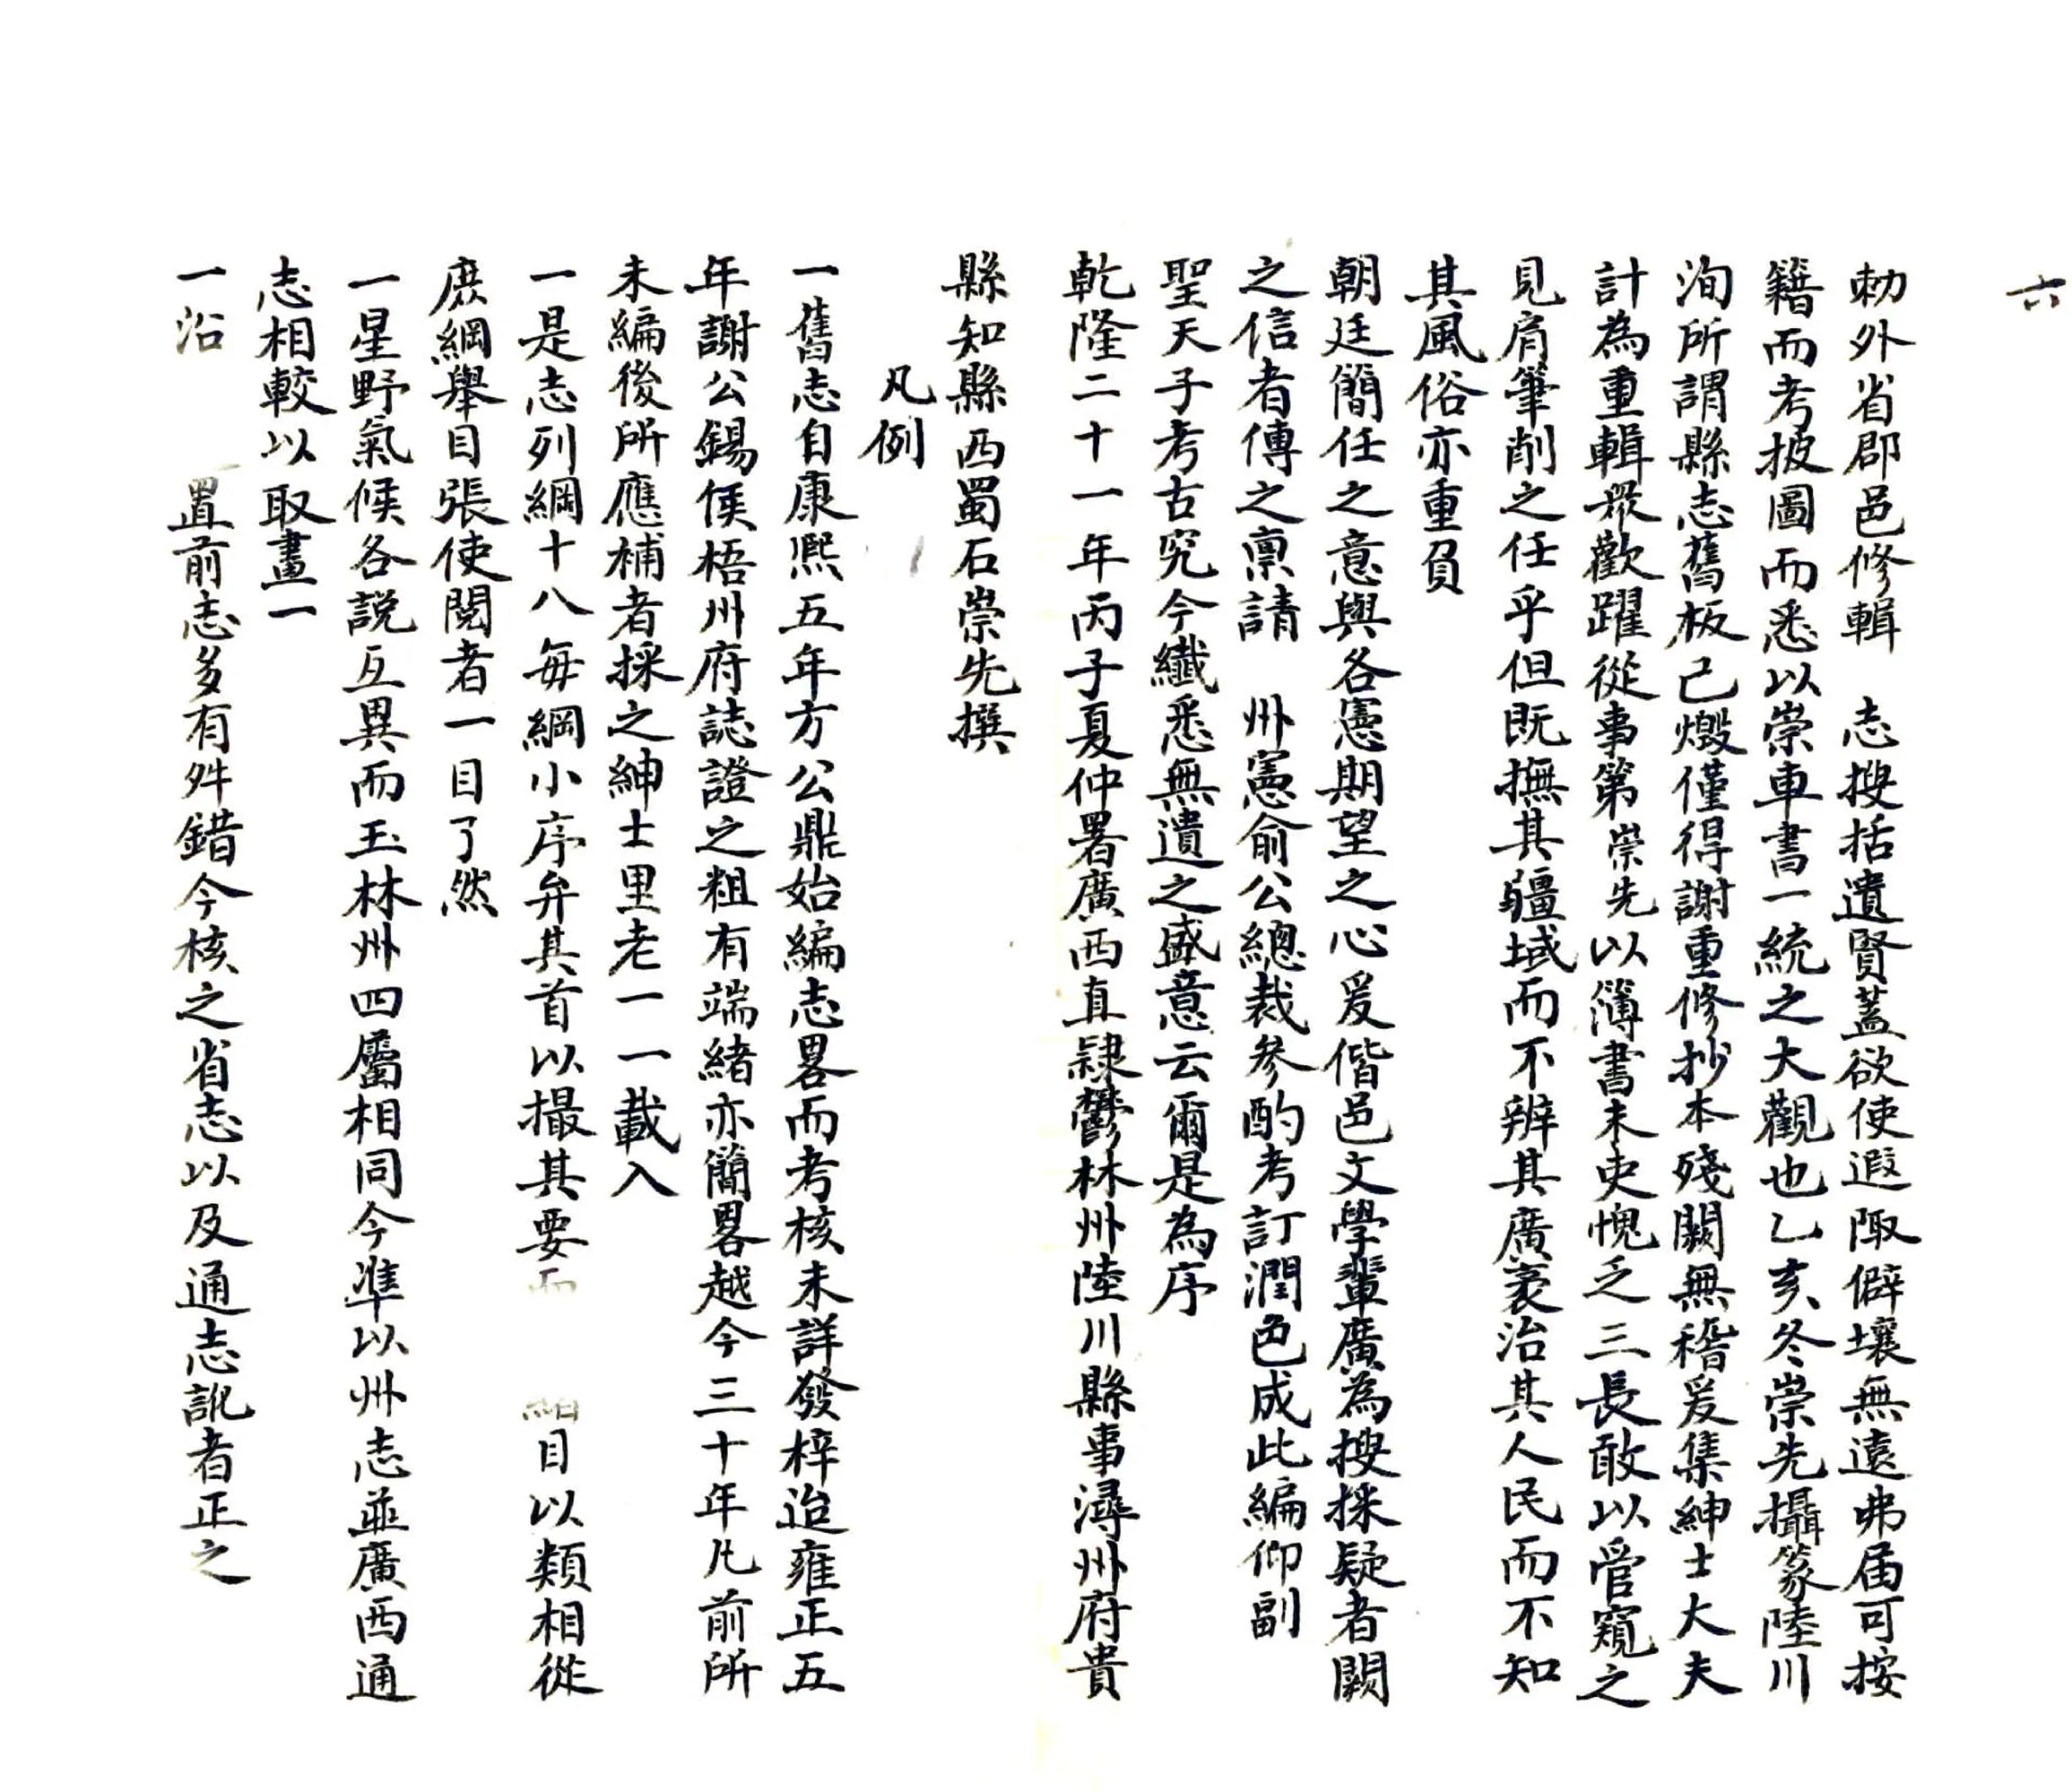 六
勅外省郡邑修輯　志搜括遺賢蓋欲使遐陬僻壤無遠弗届可按
籍而考披圖而悉以崇車書一統之大觀也乙亥冬崇先攝篆陸川
洵所謂縣志舊板已燬僅得謝重修抄本殘闕無稽爰集紳士大夫
計為重輯眾歡躍從事第崇先以簿書末吏愧乏三長敢以管窺之
見肩筆削之任乎但既撫其疆域而不辨其廣袤治其人民而不知
其風俗亦重負
朝廷簡任之意與各憲期望之心爰偕邑文學輩廣為搜採疑者闕
之信者傳之禀請　州憲俞公總裁參酌考訂潤色成此編仰副
聖天子考古究今纖悉無遺之盛意云爾是為序
乾隆二十一年丙子夏仲署廣西直隸鬱林州陸川縣事潯州府貴
縣知縣西蜀石崇先撰
凡例
一舊志自康熙五年方公鼎始編志畧而考核未詳發梓迨雍正五
年謝公錫侯梧州府誌證之粗有端緒亦簡畧越今三十年凡前所
未編後所應補者採之紳士里老一一載入
一是志列綱十八每綱小序弁其首以撮其要　目以類相從
庶綱舉目張使閱者一目了然
一星野氣候各説互異而玉林州四屬相同今準以州志並廣西通
志相較以取畫一
一沿　置前志多有舛錯今核之省志以及通志訛者正之